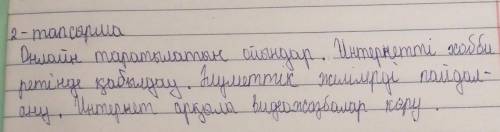 2-тапсырма
Онлайн таратылатын ойындар. Интернетті хобби
ретінде қабылдау. Әлуметтик желилерді пайдал-
ану. Интернет арқала видеожазбалар көру.